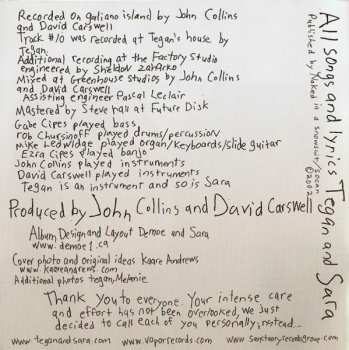 Recorded on galiano island by John Collins
and David Carswell
Track #10 was recorded at Tegan's house by
Tegan.
Additional recording at the Factory Studio
engineered by Sheldon Zaharko
Mixed at Greenhouse Studios by John Collins
and David Carswell
Assisting engineer Pascal Leclair
Mastered by Steve hall at Future Disk
Gabe Cipes played bass
rob Chursinoff played drums/percussion
Mike Ledwidge played organ/keyboards/slide guitar
Ezra Cipes played banjo
John Collins played instruments
David Carswell played instruments
Tegan is an instrument and so is Sara
Produced by John Collins and David Carswell
Album Design and Layout Demoe and Sara
www.demoe1.ca
Cover photo and original ideas Kaare Andrews
www.kaareandrews.com
Additional photos tegan, Melanie
Thank you to everyone. Your intense care
and effort has not been overlooked, we just
decided to call each of you personally, instead...
www.teganandsara.com www.vaporrecords.com www.sanctuaryrecordsgroup.com
All songs and lyrics Tegan and Sara
Published by Naked in a snowsuit/socan
©2002